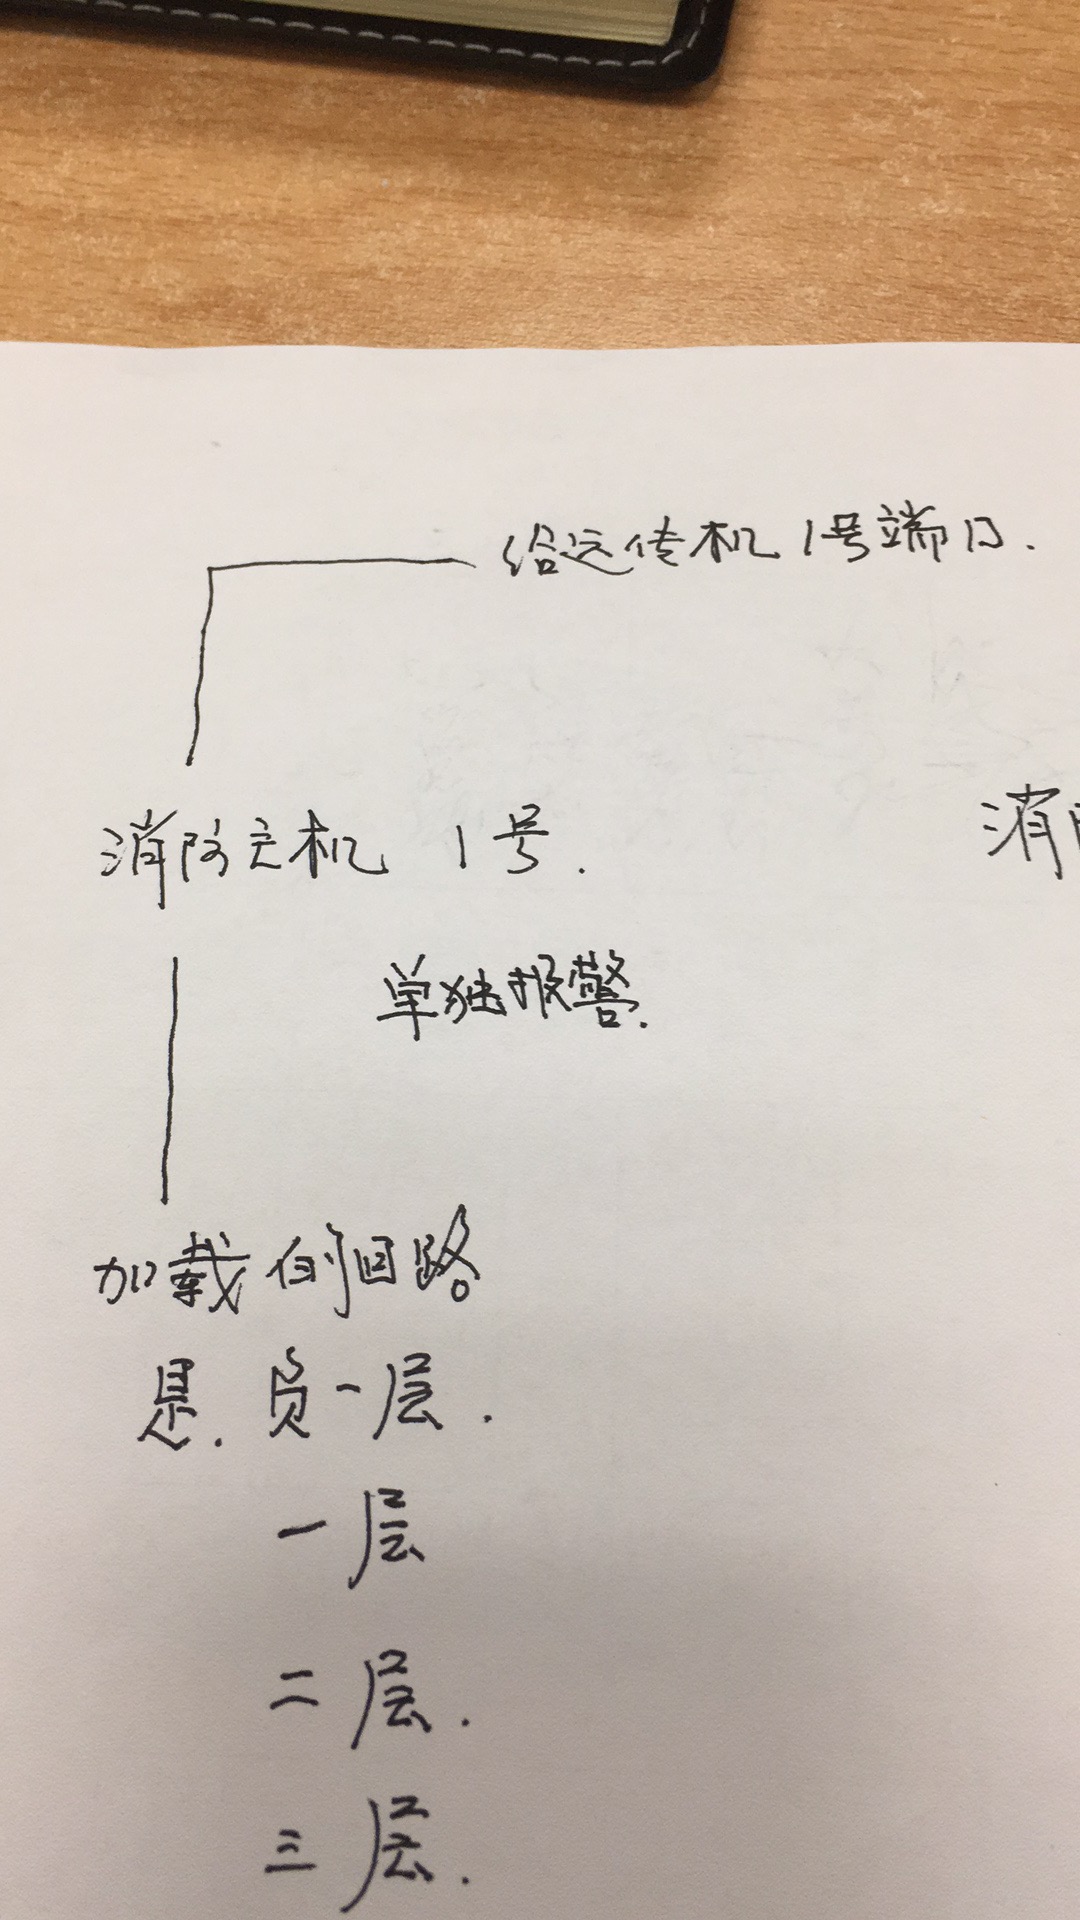 给远传机 1号端口.
消防主机 1号.
消
单独报警.
加载的回路
是.负一层.
一层
二层.
三层.